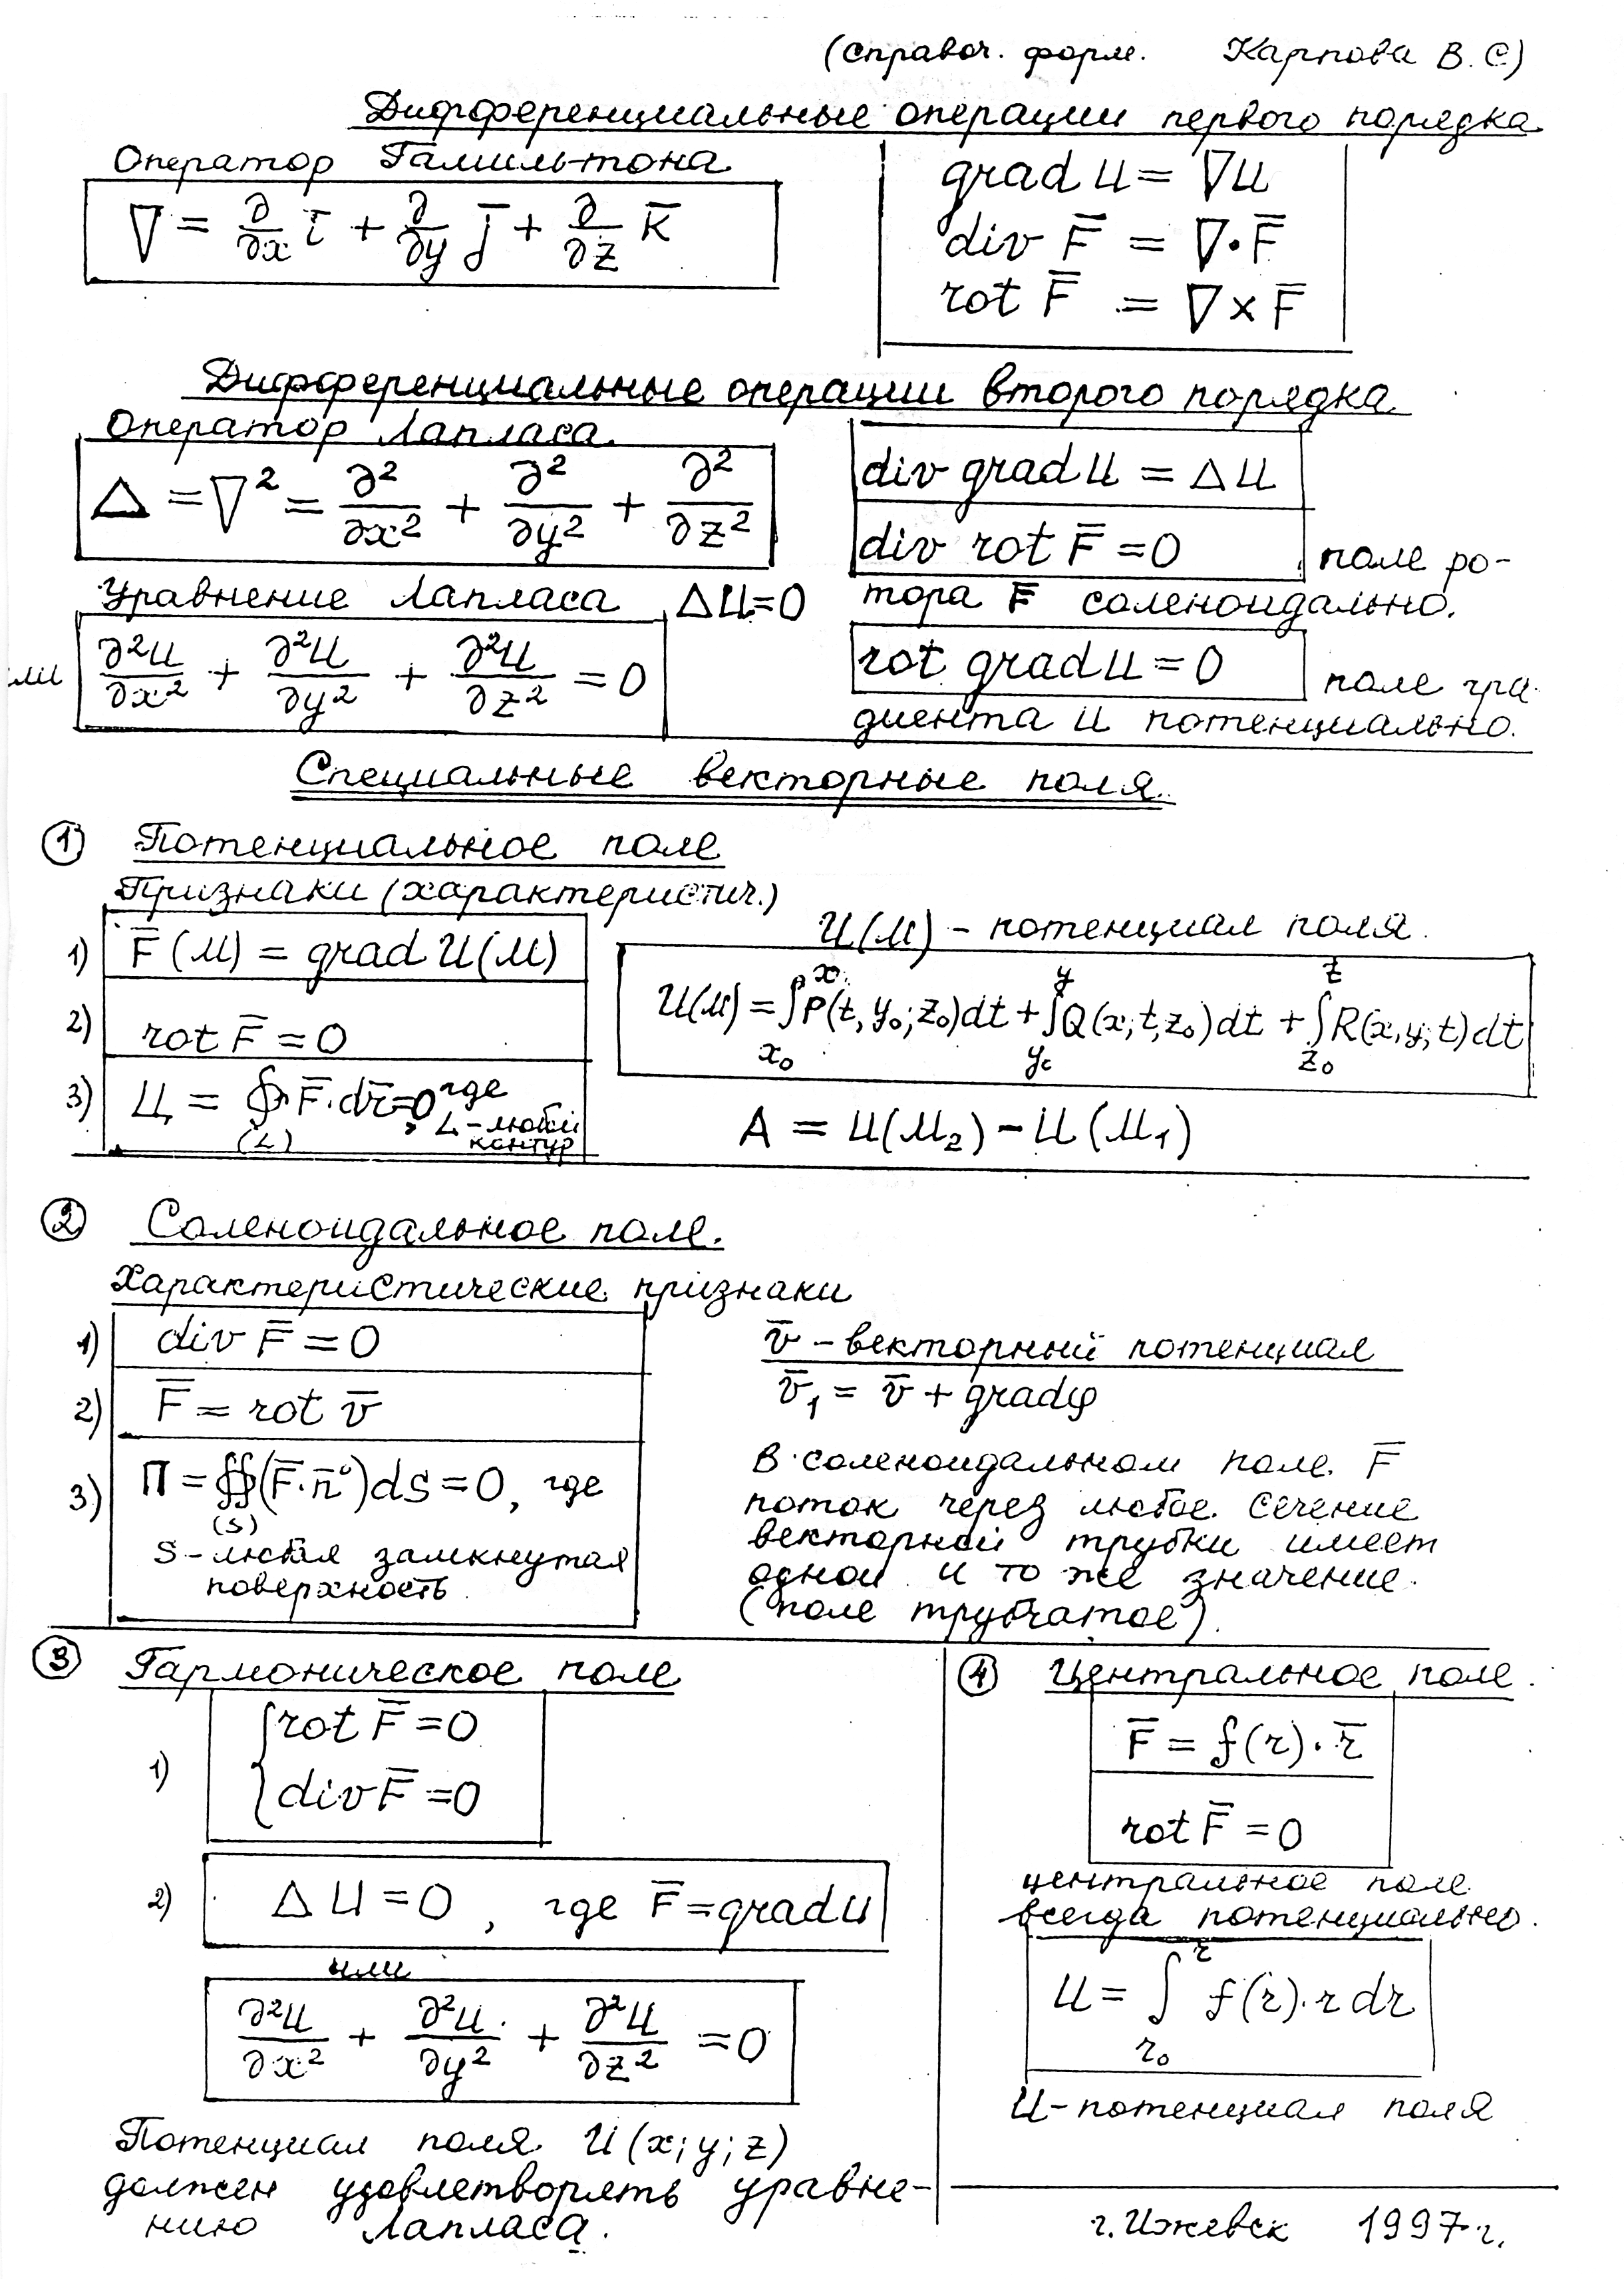 (справоч. форм. Карпова В. С.)
Дифференциальные операции первого порядка
Оператор Гамильтона
∇ = ∂/∂x i̅ + ∂/∂y j̅ + ∂/∂z k̅
grad U = ∇U
div F̅ = ∇·F̅
rot F̅ = ∇×F̅
Дифференциальные операции второго порядка
Оператор Лапласа
Δ = ∇² = ∂²/∂x² + ∂²/∂y² + ∂²/∂z²
div grad U = ΔU
div rot F̅ = 0 поле ро-
тора F̅ соленоидально.
Уравнение Лапласа ΔU=0
или ∂²U/∂x² + ∂²U/∂y² + ∂²U/∂z² = 0
rot grad U = 0 поле гра-
диента U потенциально.
Специальные векторные поля.
① Потенциальное поле
Признаки (характеристич.)
1) F̅(M) = grad U(M)
2) rot F̅ = 0
3) Ц = ∮(L) F̅·dr̅=0, где
L – любой
контур
U(M) – потенциал поля.
U(M) = ∫x₀x P(t, y₀; z₀)dt + ∫y₀y Q(x; t, z₀)dt + ∫z₀z R(x, y; t)dt
A = U(M₂) – U(M₁)
② Соленоидальное поле.
Характеристические признаки
1) div F̅ = 0
2) F̅ = rot v̅
3) П = ∯(S) (F̅·n̅°)ds = 0, где
S – любая замкнутая
поверхность
v̅ – векторный потенциал
v̅₁ = v̅ + gradφ
В соленоидальном поле F̅
поток через любое сечение
векторной трубки имеет
одной и то же значение.
(поле трубчатое).
③ Гармоническое поле
1) { rot F̅ = 0
div F̅ = 0
2) ΔU = 0, где F̅ = grad U
или
∂²U/∂x² + ∂²U/∂y² + ∂²U/∂z² = 0
Потенциал поля U(x; y; z)
должен удовлетворять уравне-
нию Лапласа.
④ Центральное поле.
F̅ = f(r)·r̅
rot F̅ = 0
центральное поле
всегда потенциально.
U = ∫r₀r f(r)·r dr
U – потенциал поля
г. Ижевск 1997 г.